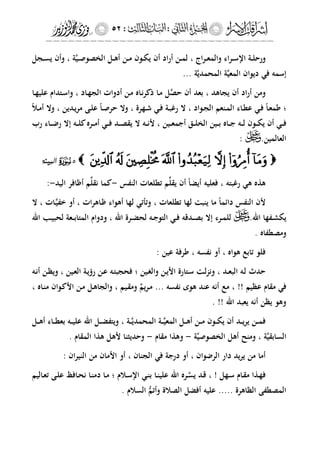 أسرار في الإسراء
الجزء الثاني : الباب الثالث : ٥٢
نوري محمدي
ورحلـة الإسـراء والمعـراج ، لمـن أراد أن يكـون مـن أهـل الخصوصيَّة ، وأن يسـجل
إسمه في ديوان المعيَّة المحمديَّة ...
ومن أراد أن يجاهد ، بعد أن حصَّل ما ذكرناه من أدوات الجهاد ، واستدام عليها
؛ طمعاً في عطاء المنعم الجواد ، لا رغبة في شهرة ، ولا حرصاً على مريدين ، ولا أملاً
في أن يكون له جاه بين الخلق أجمعين ، لأنه لا يقصد في أمره كله إلا رضاء رب
العالمين :
﴿ وَمَآ أُمِرُوٓا۟ إِلَّا لِيَعْبُدُوا۟ ٱللَّهَ مُخْلِصِينَ لَهُ ٱلدِّينَ ﴾ البينة
هذه هي رغبته ، فعليه أيضاً أن يقلِّم تطلعات النفس –كما نقلِّم أظافر اليد-:
لأن النفس دائماً ما ينبت لها تطلعات ، وتأتي لها أهواء ظاهرات ، أو خفيَّات ، لا
يكشفها الله للمرء إلا بصدقه في التوجه لحضرة الله ، ودوام المتابعة لحبيب الله
ومصطفاه .
فلو تابع هواه ، أو نفسه ، طرفة عين :
حدث له البعد ، ونزلت ستارة الأين والغين ؛ فحجبته عن رؤية العين ، ويظن أنه
في مقام عظيم !! ، مع أنه عند هوى نفسه ... مريمٌ ومقيم ، والجاهل من الأكوان مناه ،
وهو يظن أنه يعبد الله !! .
فمن يريد أن يكون من أهل المعيَّة المحمديَّة ، ويتفضل الله عليه بعطاء أهل
السابقيَّة ، ومنح أهل الخصوصيَّة – وهذا مقام – وحديثنا لأهل هذا المقام .
أما من يريد دار الرضوان ، أو درجة في الجنان ، أو الأمان من النيران :
فهذا مقام سهل ! ، قد يسَّره الله علينا بني الإسلام ؛ ما دمنا نحافظ على تعاليم
المصطفى الظاهرة ..... عليه أفضل الصلاة وأتمُّ السلام .